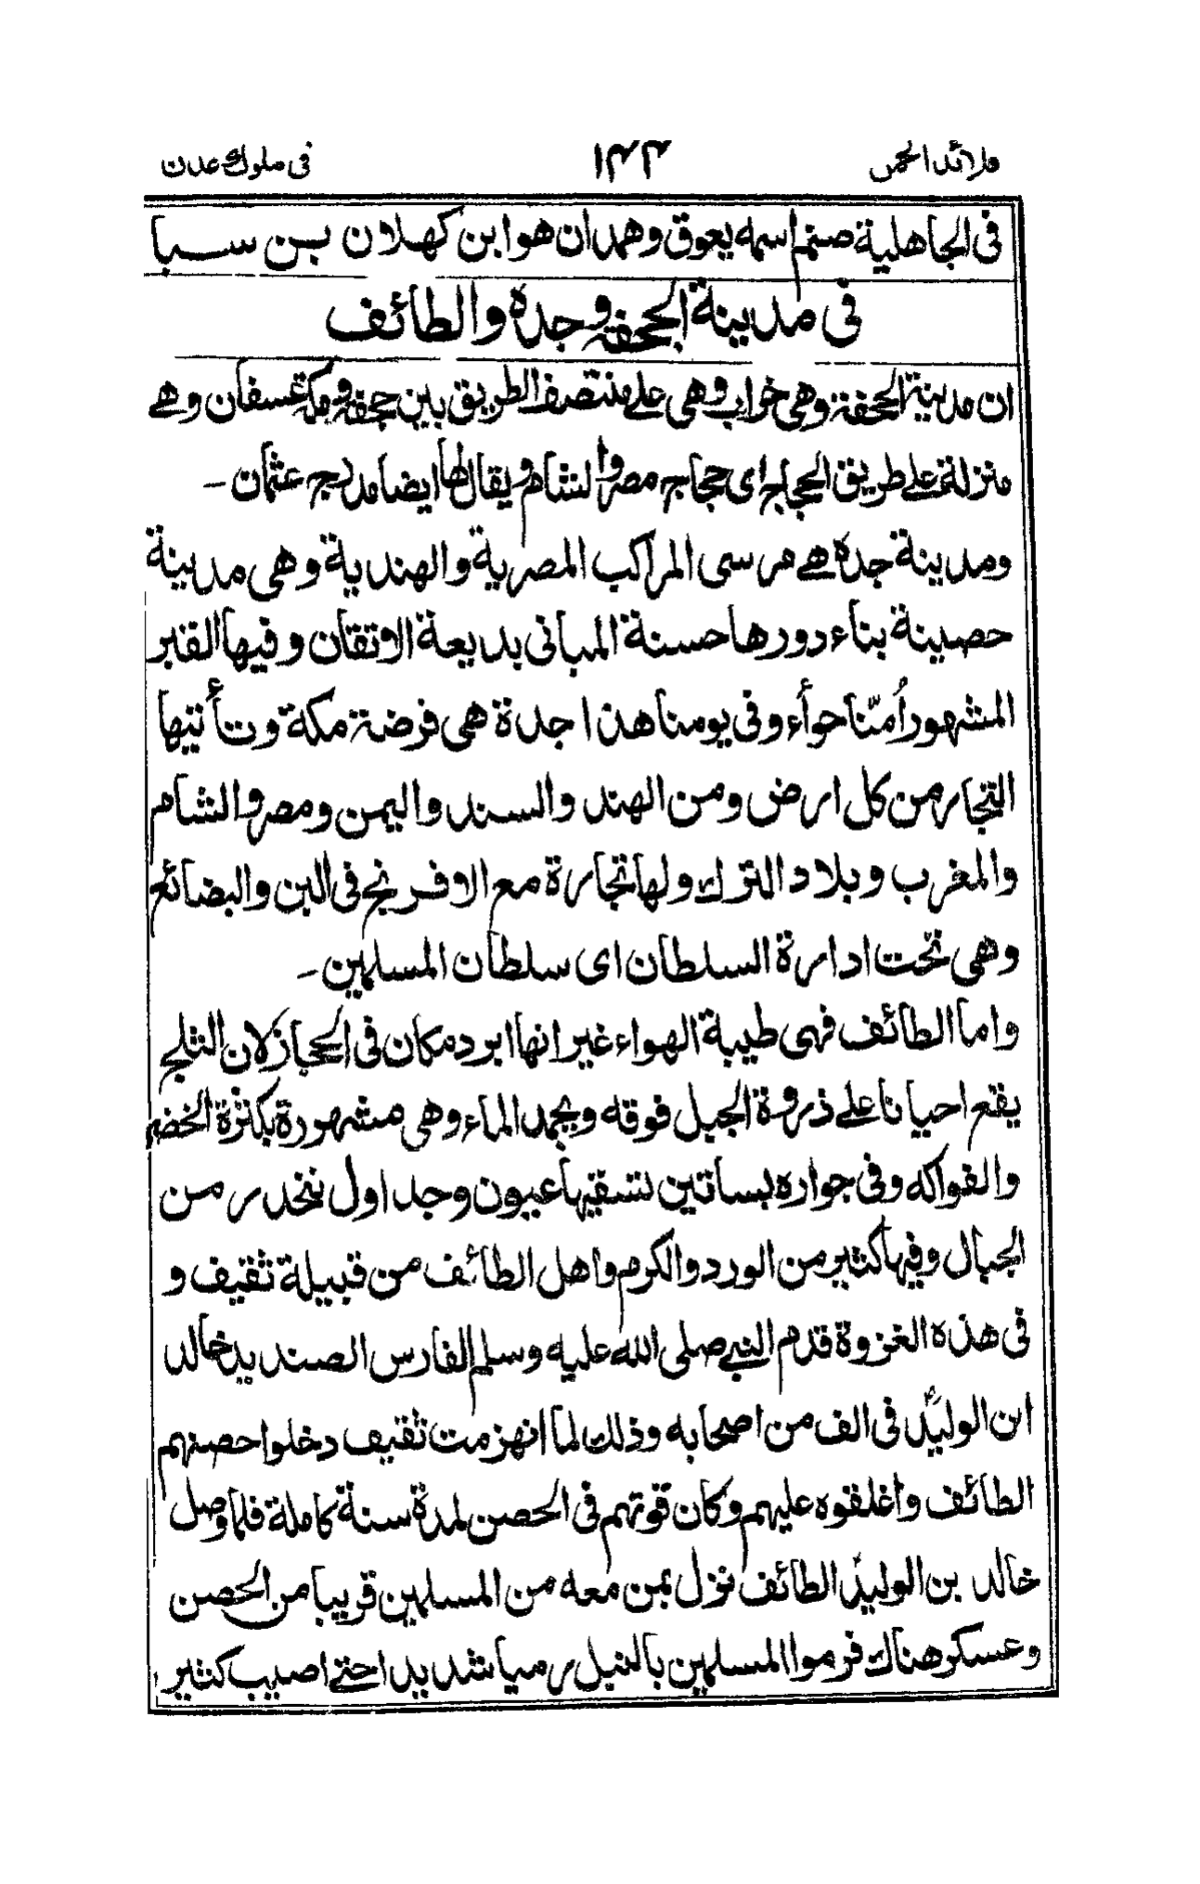 قلائد الجمن ١٤٣ فى ملوك عدن
فى الجاهلية صنم اسمه يعوق وهمدان هو ابن كهلان بن سبا
فى مدينة الجحفة وجدة والطائف
ان مدينة الجحفة وهى خراب وهى على منتصف الطريق بين جحفة ومكة عسفان وهى
منزلة على طريق الحجاج اى حجاج مصر والشام ويقال لها ايضا مدرج عثمان -
ومدينة جدة هى مرسى المراكب المصرية والهندية وهى مدينة
حصينة بناء دورها حسنة المبانى بديعة الاتقان وفيها القبر
المشهور اُمّنا حوأء وفى يومنا هذا جدة هى فرضة مكة وتأتيها
التجار من كل ارض ومن الهند والسند واليمن ومصر والشام
والمغرب وبلاد الترك ولها تجارة مع الافرنج فى البن والبضائع
وهى تحت ادارة السلطان اى سلطان المسلمين -
واما الطائف فهى طيبة الهواء غير انها ابرد مكان فى الحجاز لان الثلج
يقع احيانا على ذروة الجبل فوقه ويجمد الماء وهى مشهورة بكثرة الخضر
والفواكه وفى جواره بساتين تسقيها عيون وجداول تنحدر من
الجبال وفيها كثير من الورد والكرم واهل الطائف من قبيلة ثقيف و
فى هذه الغزوة قدم النبى صلى الله عليه وسلم الفارس الصنديد خالد
ابن الوليد فى الف من اصحابه وذلك لما انهزمت ثقيف دخلوا حصنهم
الطائف واغلقوه عليهم وكان قوتهم فى الحصن لمدة سنة كاملة فلما وصل
خالد بن الوليد الطائف نزل بمن معه من المسلمين قريبا من الحصن
وعسكر هناك فرموا المسلمين بالنبل رميا شديدا حتى اصيب كثير